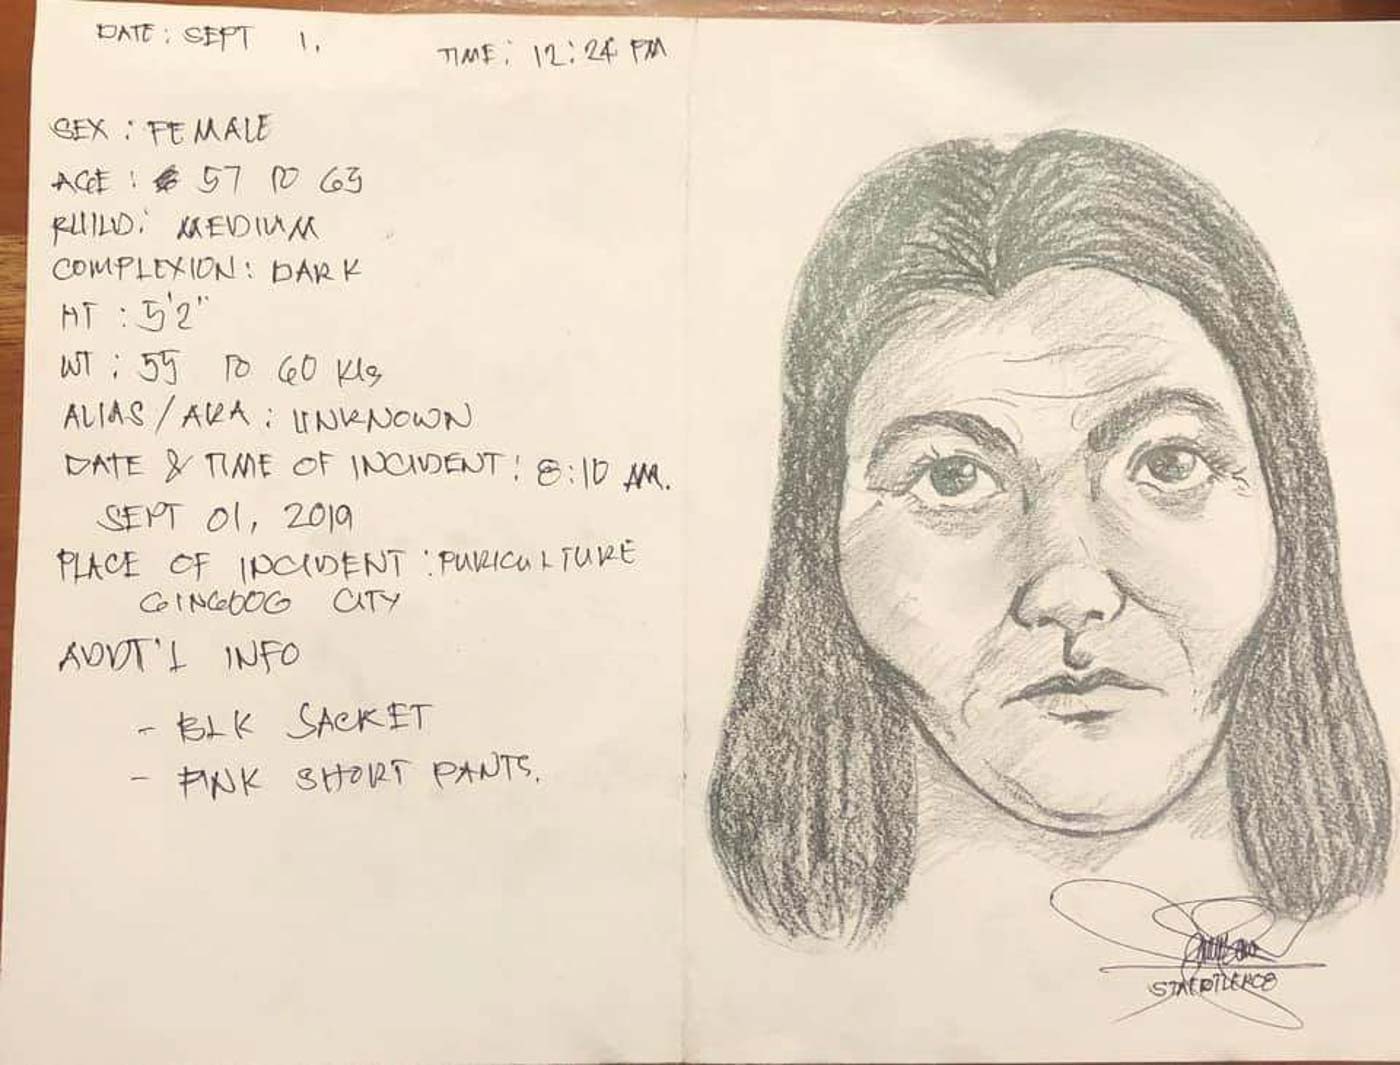 DATE: SEPT 1,
TIME: 12:24 PM
SEX: FEMALE
AGE: 57 TO 63
BUILD: MEDIUM
COMPLEXION: DARK
HT: 5'2"
WT: 55 TO 60 Klg
ALIAS/AKA: UNKNOWN
DATE & TIME OF INCIDENT: 8:10 AM.
SEPT 01, 2019
PLACE OF INCIDENT: PURICULTURE
GINGOOG CITY
ADDT'L INFO
- BLK JACKET
- PINK SHORT PANTS.